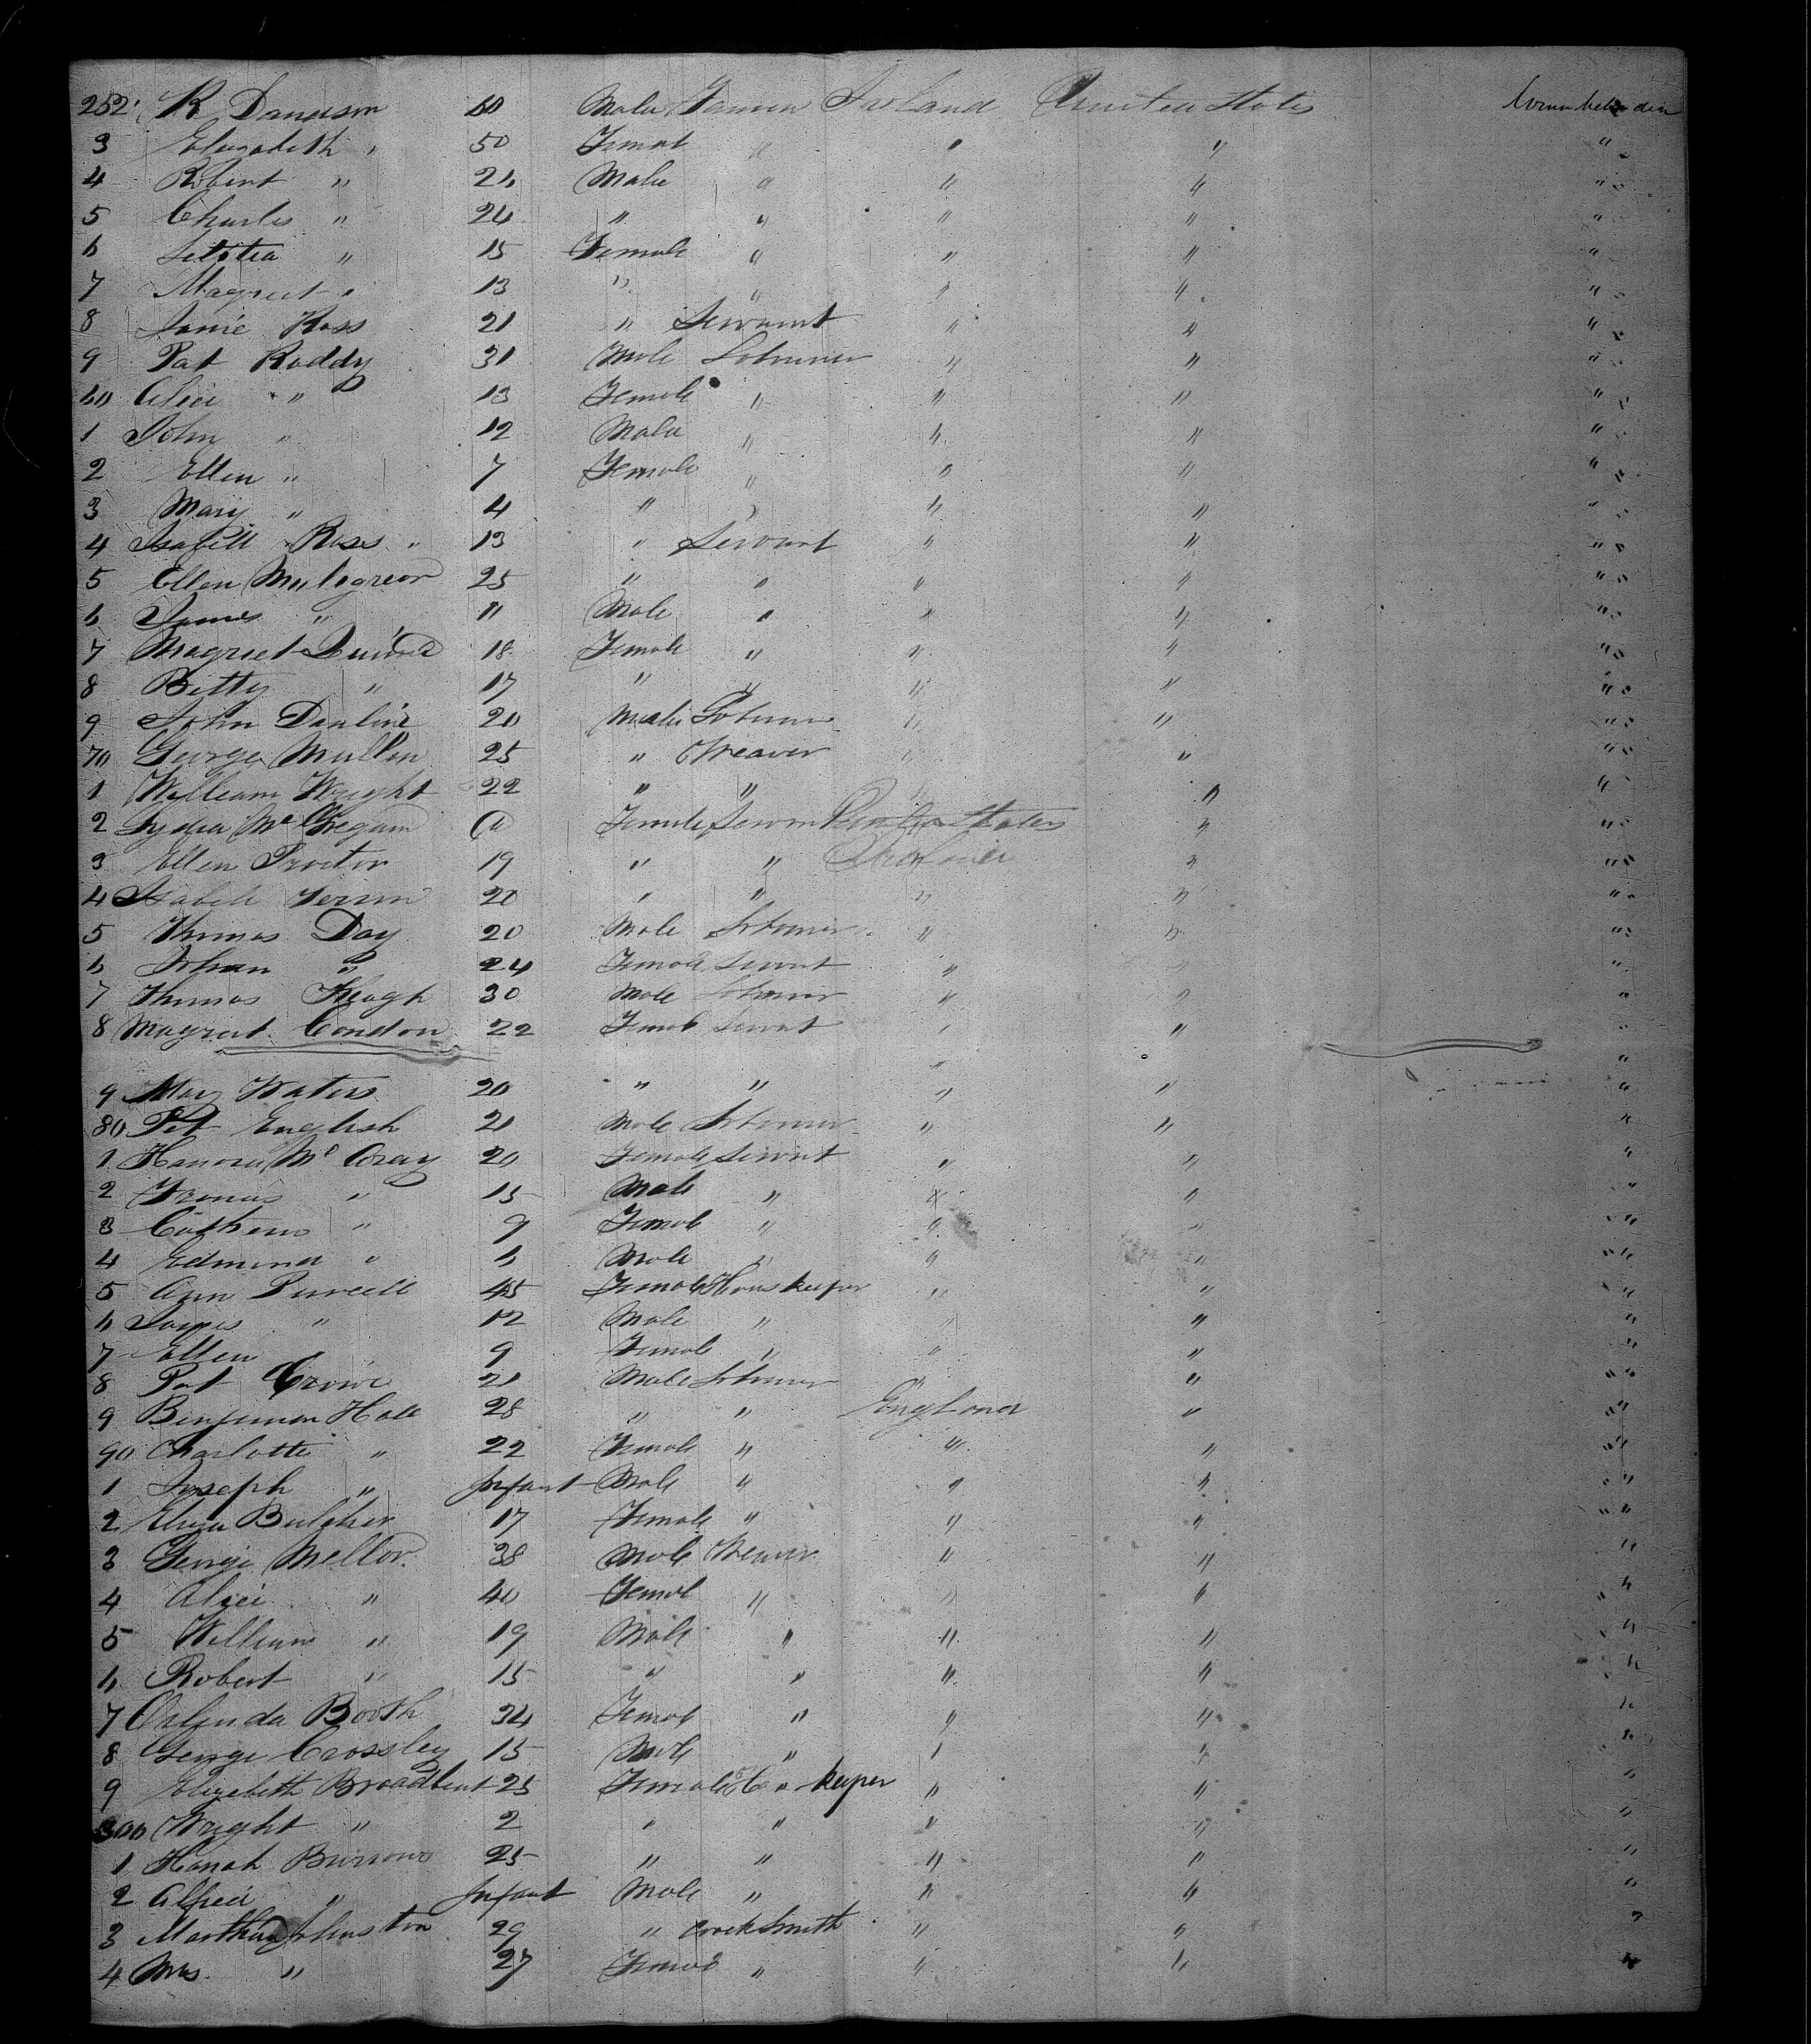 252 R Davidson 60 Male Farmer Ireland United States
3 Elizabeth " 50 Femal " " " "
4 Robert " 26 Male " " " "
5 Charles " 24 " " " " "
6 Letitia " 15 Female " " " "
7 Magreet " 13 " " " " "
8 Janie Ross 21 " Servant " " "
9 Pat Roddy 31 Male Labourer " " "
60 Alice " 13 Female " " " "
1 John " 12 Male " " " "
2 Ellen " 7 Female " " " "
3 Mary " 4 " " " " "
4 Isabell Ross " 13 " Servant " " "
5 Ellen 25 " " " " "
6 James " 11 Male " " " "
7 Magreet 18 Female " " " "
8 Betty " 17 " " " " "
9 John 20 Male Labourer " " "
70 George Mullen 25 " Weaver " " "
1 William Wright 22 " " " " "
2 Lydia Female Servant United States " "
3 Ellen Proctor 19 " " Ireland " "
4 Isabell 20 " " " " "
5 Thomas Day 20 Male Labourer " " "
6 Johan " 24 Female Servnt " " "
7 Thomas Keogh 30 Male Labourer " " "
8 Magreet Condon 22 Femal Servnt " " "
9 Mary Waters 20 " " " " "
80 Pat English 21 Male Labourer " " "
1 Hanora Mc Cray 20 Female Servnt " " "
2 Francis " 15 Male " " " "
3 Cathern " 9 Femal " " " "
4 Edmund " 6 Male " " " "
5 Ann Purcell 45 Female House keeper " " "
6 James " 12 Male " " " "
7 Ellen 9 Femal " " " "
8 Pat Crowe 21 Male Labourer " " "
9 Benjuman Hall 28 " " England " "
90 Charlotte " 22 Femal " " " "
1 Joseph " Infant Male " " " "
2 Eliza 17 Female " " " "
3 George Mellor 38 Male Weaver " " "
4 Alice " 40 Femal " " " "
5 William " 19 Male " " " "
6 Robert " 15 " " " " "
7 Booth 34 Femal " " " "
8 George Crossley 15 Male " " " "
9 Elizebeth Broadbent 25 Female Ho " keeper " " "
300 Wright " 2 " " " " "
1 Hanah Burrows 25 " " " " "
2 Alfred " Infant Male " " " "
3 Johnston 29 " " " "
4 Mrs " 27 Femal " " " "